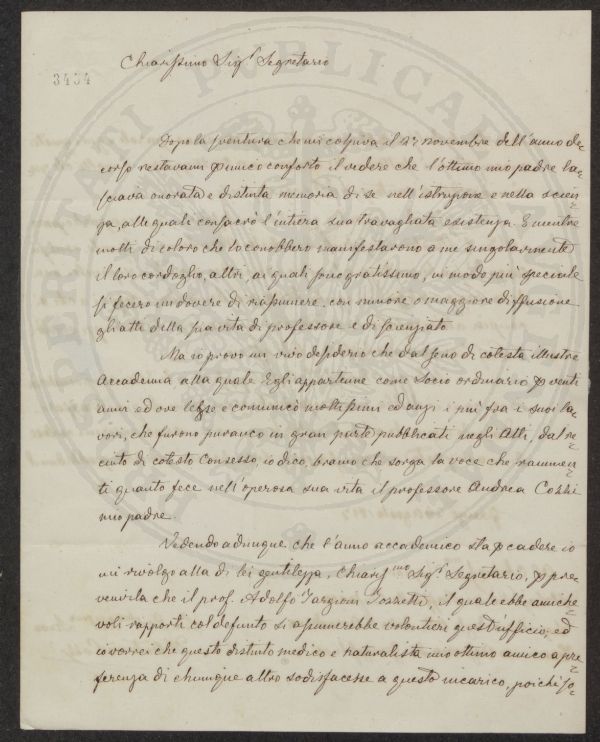 Chiarissimo Sigʳ Segretario
3434
Dopo la sventura che mi colpiva il 27 novembre dell'anno de-
corso restavami per unico conforto il vedere che l'ottimo mio padre la-
sciava onorata e distinta memoria di se nell'istruzione e nella scien-
za, alle quali consacrò l'intiera sua travagliata esistenza. E mentre
molti di coloro che lo conobbero manifestarono a me singolarmente
il loro cordoglio, altri, ai quali sono gratissimo, in modo più speciale
si fecero un dovere di riassumere, con minore o maggiore diffusione
gli atti della sua vita di professore e di scienziato.
Ma io provo un vivo desiderio che dal seno di cotesta illustre
Accademia alla quale Egli appartenne come Socio ordinario per venti
anni ed ove lesse e comunicò moltissimi ed anzi i più fra i suoi la-
vori, che furono puranco in gran parte pubblicati negli Atti, dal re-
cinto di cotesto Consesso, io dico, bramo che sorga la voce che rammen-
ti quanto fece nell'operosa sua vita il professore Andrea Cozzi
mio padre.
Vedendo adunque che l'anno accademico sta per cadere io
mi rivolgo alla di lei gentilezza, Chiarissᵐᵒ Sigʳ Segretario, per pre-
venirla che il prof. Adolfo Targioni Tozzetti, il quale ebbe amiche
voli rapporti col defunto si assumerebbe volontieri quest'ufficio, ed
io vorrei che questo distinto medico e naturalista mio ottimo amico a pre
ferenza di chiunque altro sodisfacesse a questo incarico, poichè so-